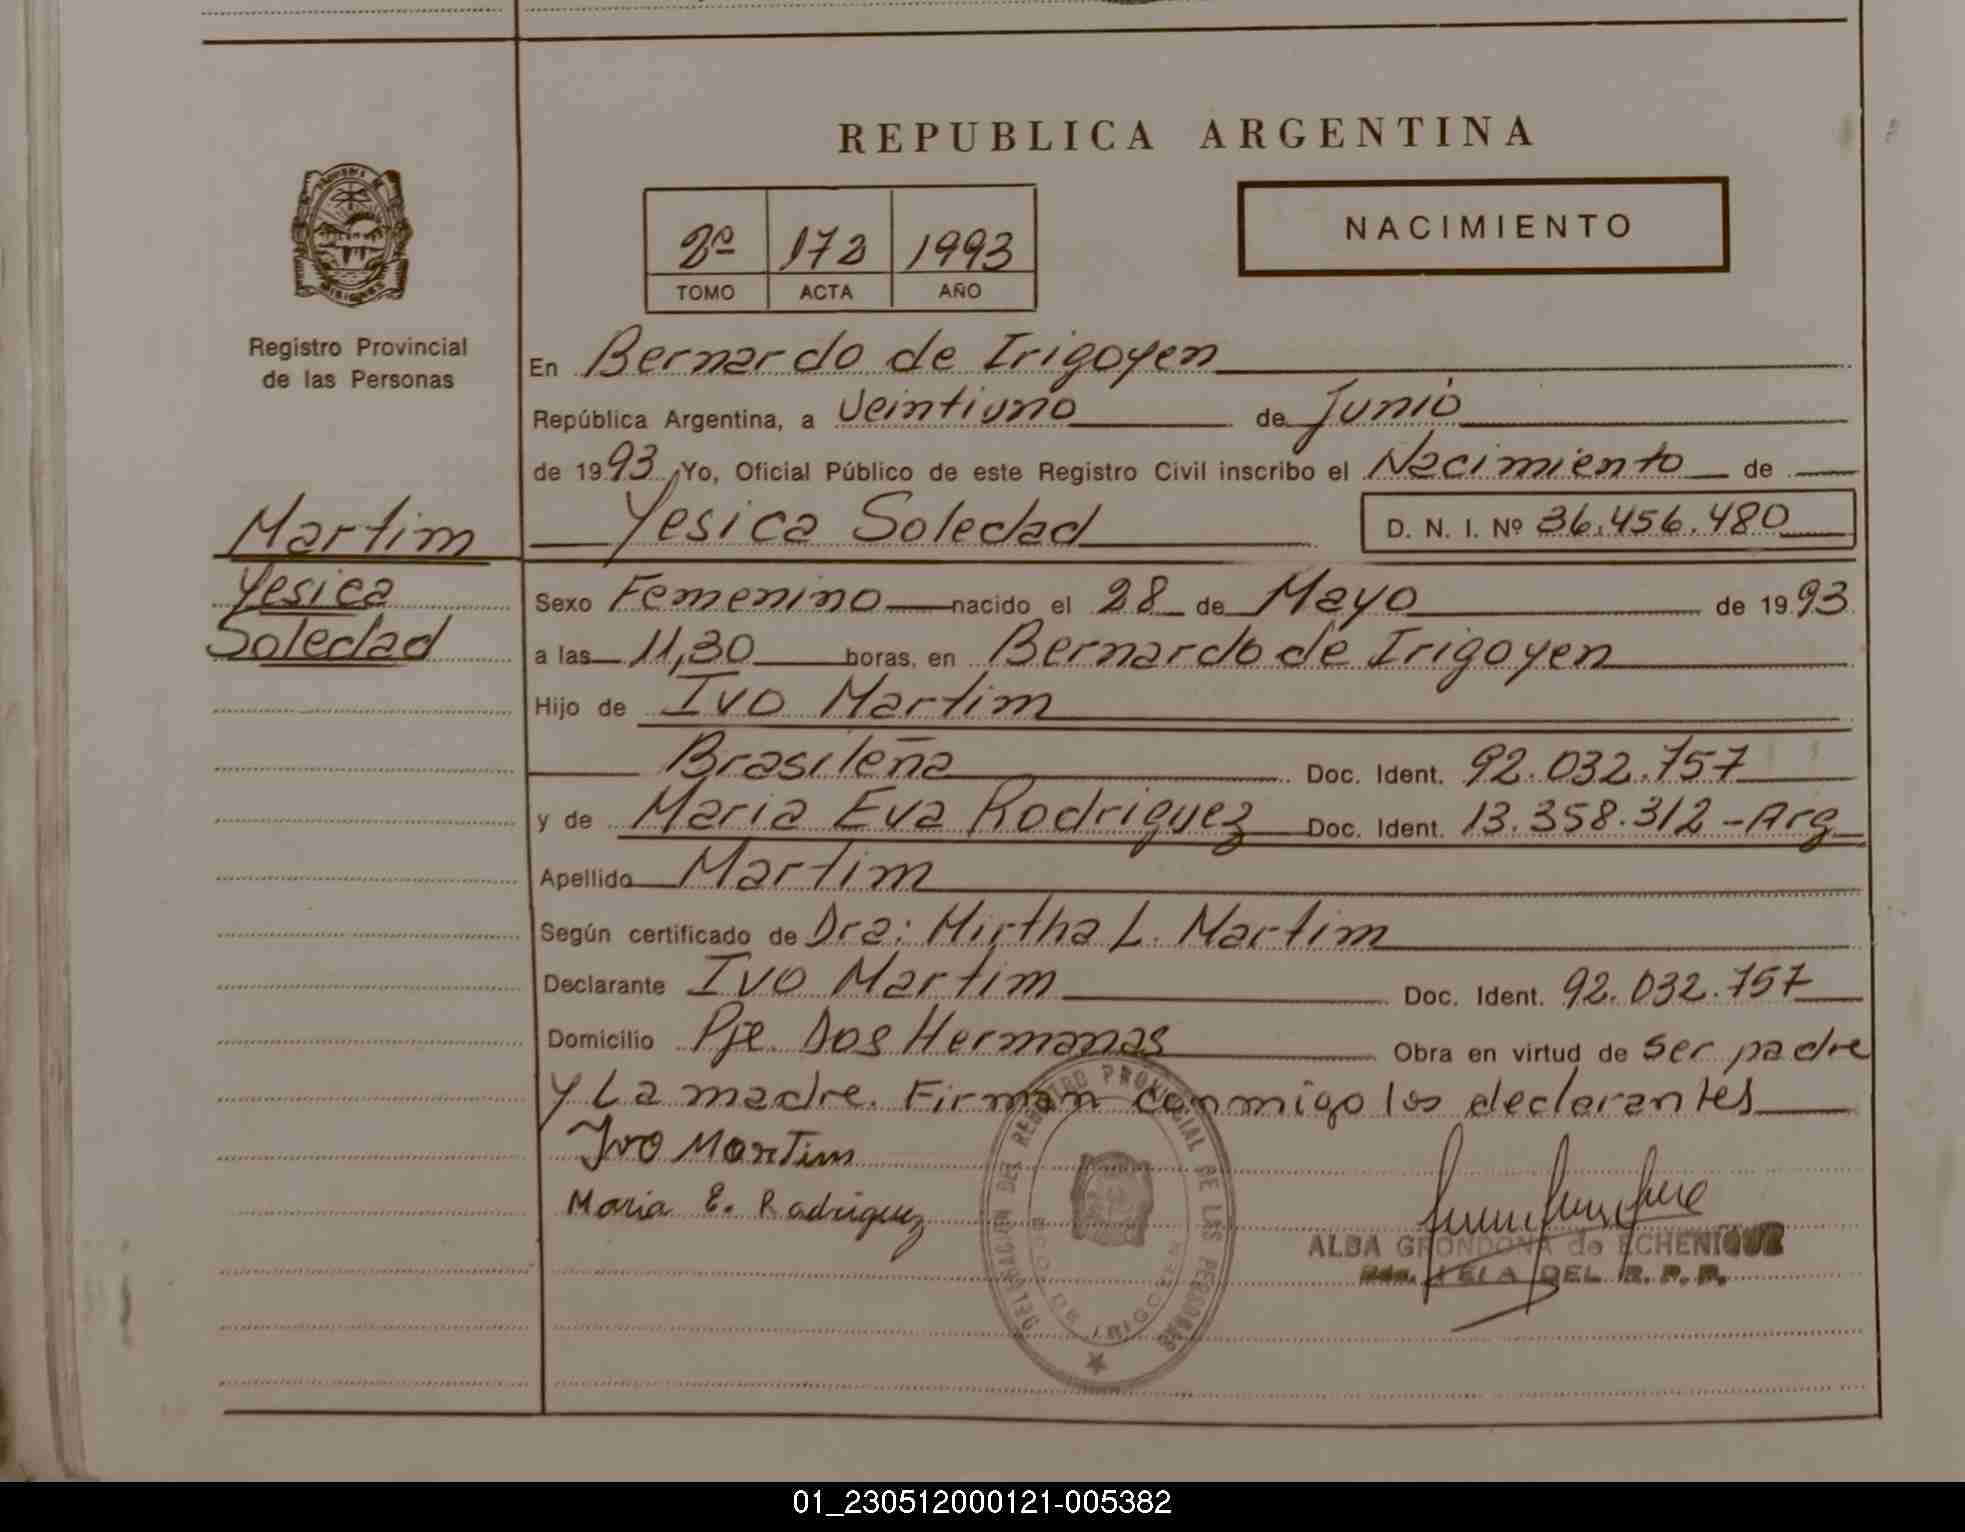 REPUBLICA ARGENTINA
2º 172 1993
TOMO ACTA AÑO
NACIMIENTO
Registro Provincial
de las Personas
Martim
Yesica
Soledad
En Bernardo de Irigoyen
República Argentina, a Veintiuno de Junio
de 1993 Yo, Oficial Público de este Registro Civil inscribo el Nacimiento de
Yesica Soledad D. N. I. Nº 36.456.480
Sexo Femenino nacido el 28 de Mayo de 1993
a las 11,30 horas, en Bernardo de Irigoyen
Hijo de Ivo Martim
Brasileña Doc. Ident. 92.032.757
y de Maria Eva Rodriguez Doc. Ident. 13.358.312 - Arg
Apellido Martim
Según certificado de Dra: Mirtha L. Martim
Declarante Ivo Martim Doc. Ident. 92.032.757
Domicilio Pje. Dos Hermanas Obra en virtud de ser padre
y La madre. Firman conmigo los declarantes
Ivo Martim
Maria E. Rodriguez
DELEGACION DEL REGISTRO PROVINCIAL DE LAS PERSONAS
BDO. DE IRIGOYEN
ALBA GRONDONA de ECHENIQUE
DEL R. P. P.
01_230512000121-005382